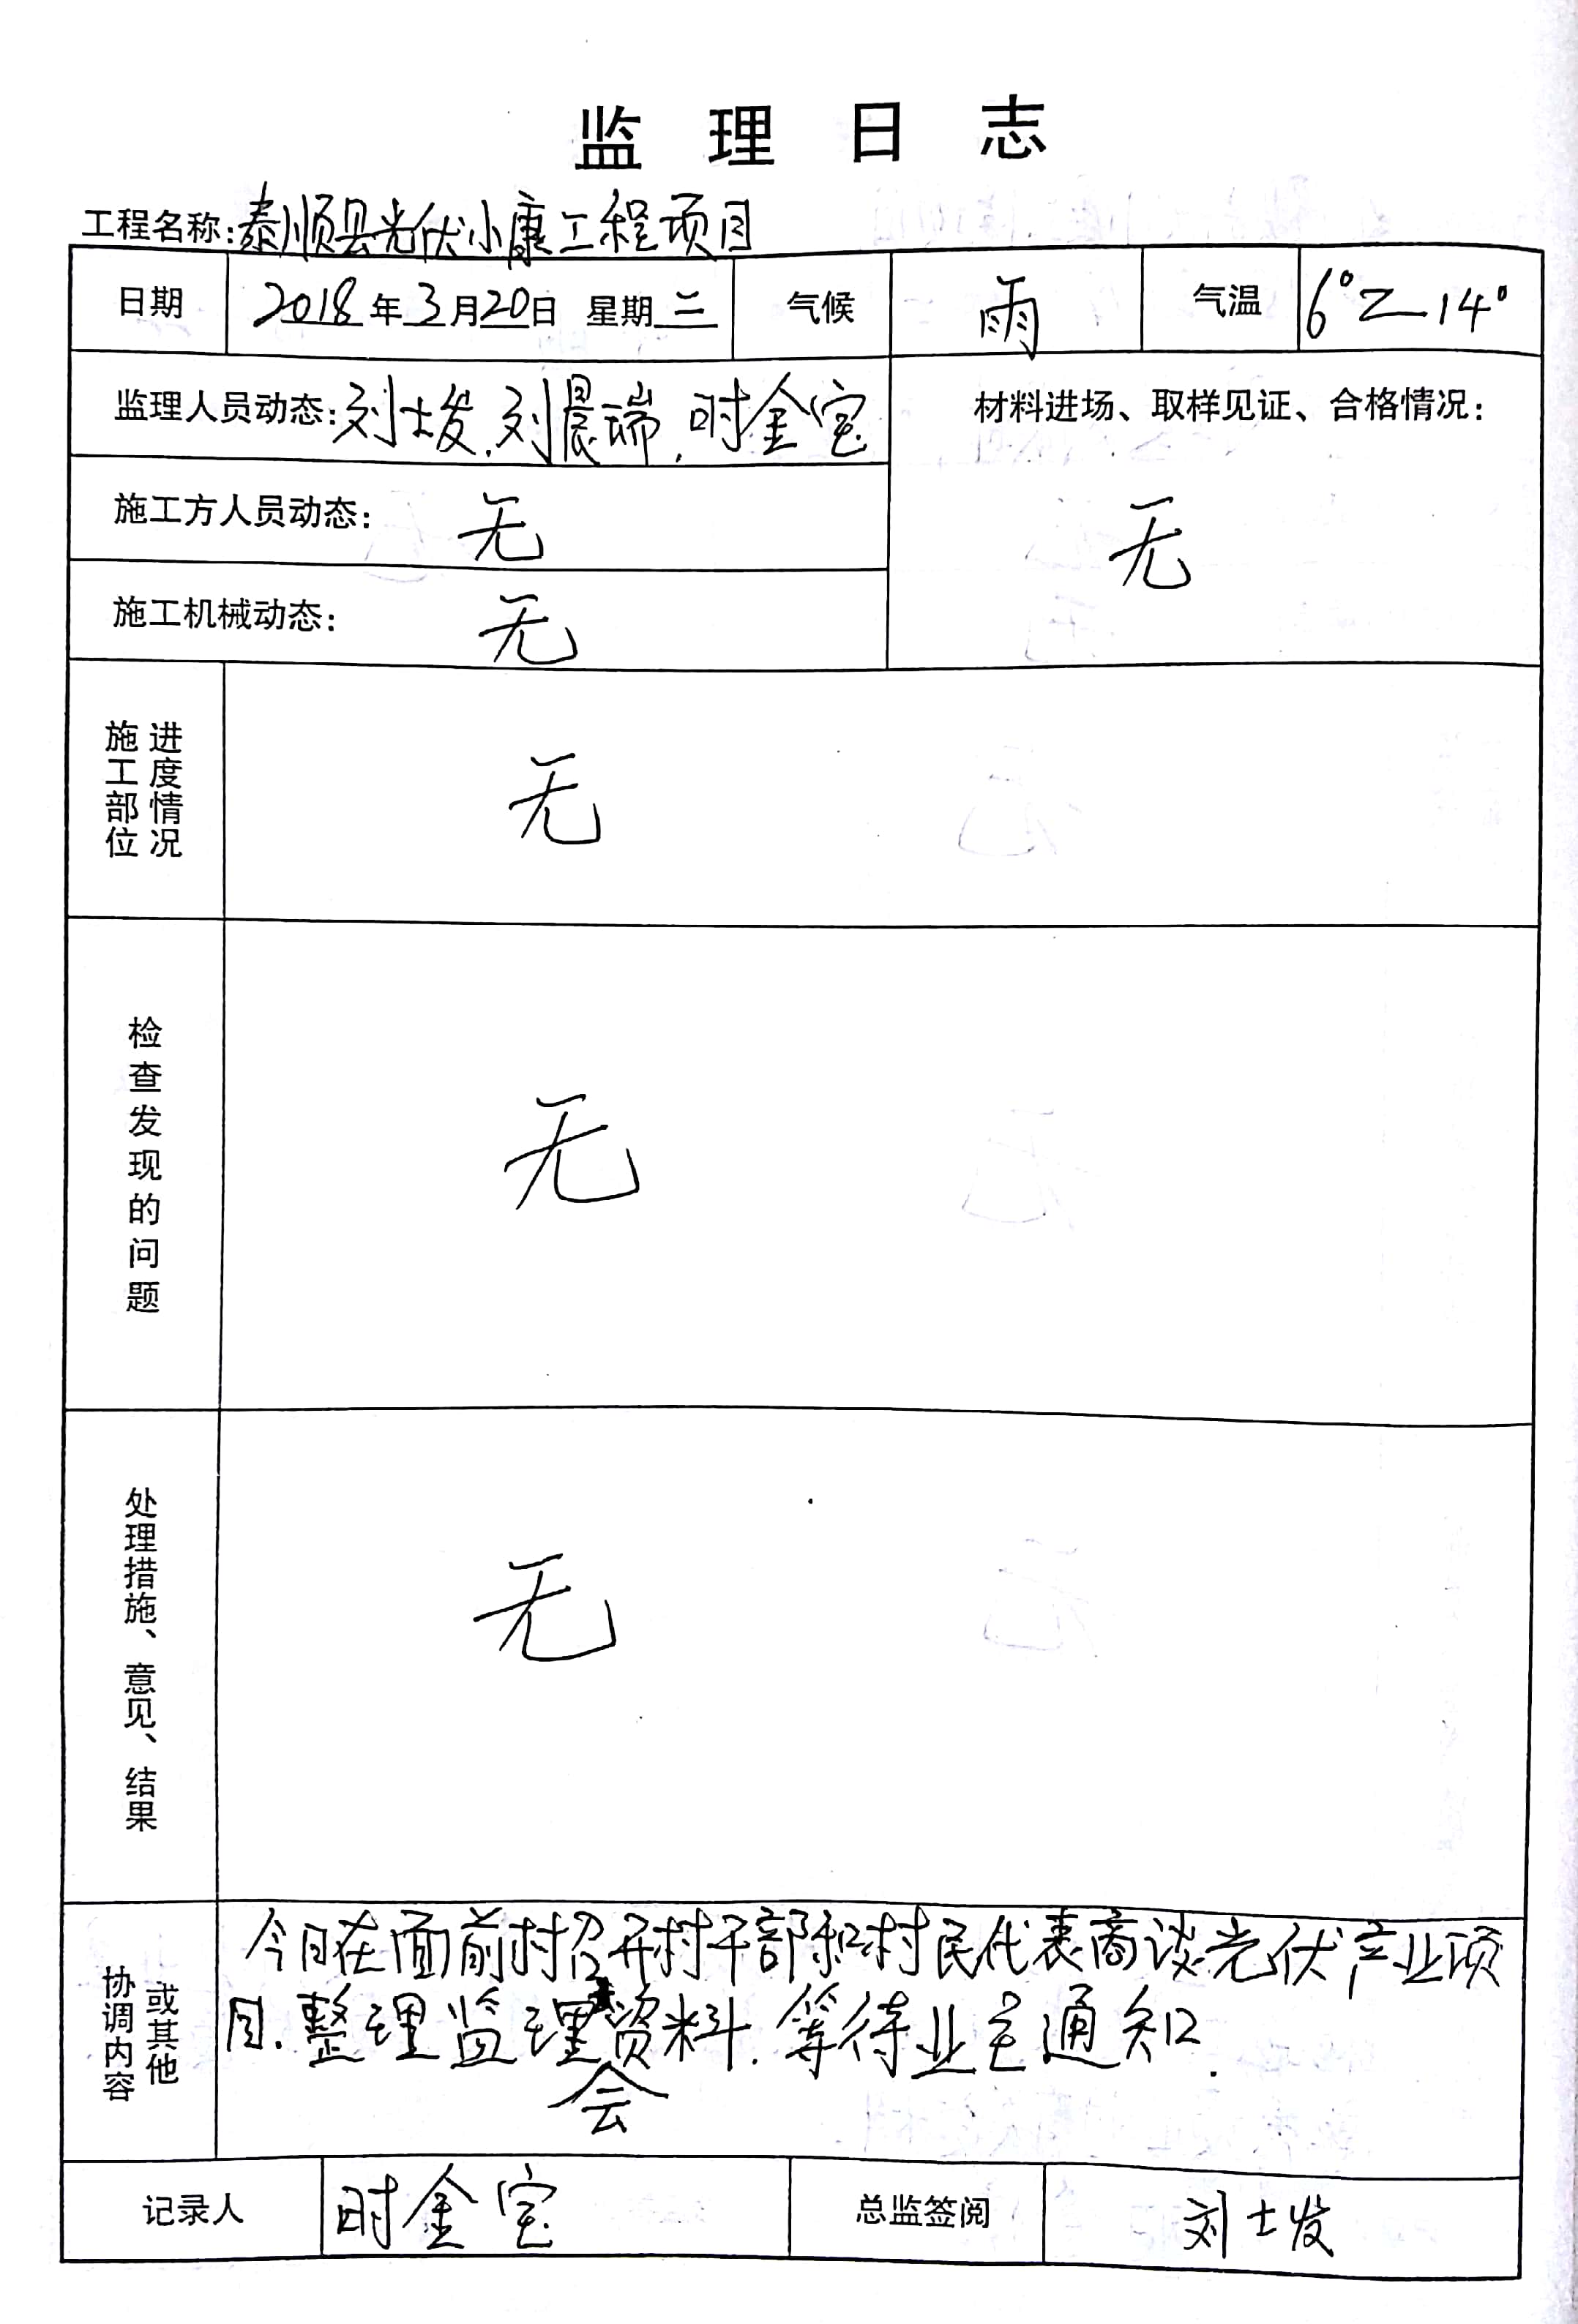 监理日志
工程名称:泰顺县光伏小康工程项目
日期 2018年3月20日 星期二 气候 雨 气温 6°Z-14°
监理人员动态:刘士发.刘晨瑞.时金宝
材料进场、取样见证、合格情况:
无
施工方人员动态: 无
施工机械动态: 无
施工部位
进度情况
无
检查发现的问题
无
处理措施、意见、结果
无
协调内容
或其他
今日在面前村召开村干部和村民代表商谈光伏产业项
目.整理监理资料.等待业主通知.
会
记录人 时金宝 总监签阅 刘士发